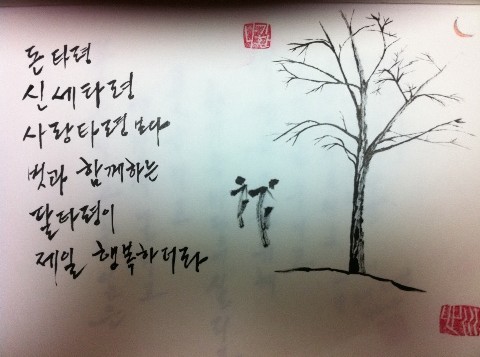 돈타령
신세타령
사랑타령보다
벗과 함께하는
달타령이
제일 행복하더라